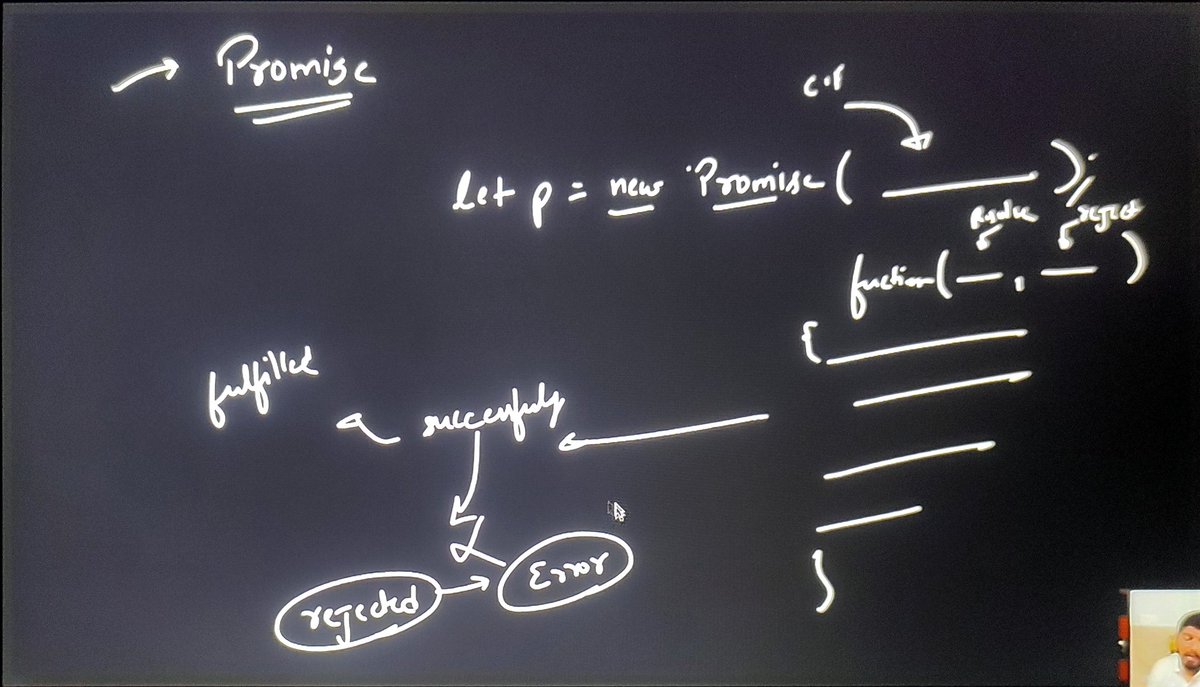 → Promise
C.F
let p = new Promise( ____ );
Resolve reject
fuction( __ , __ )
{
fulfilled
successfuly
Error
rejected
}